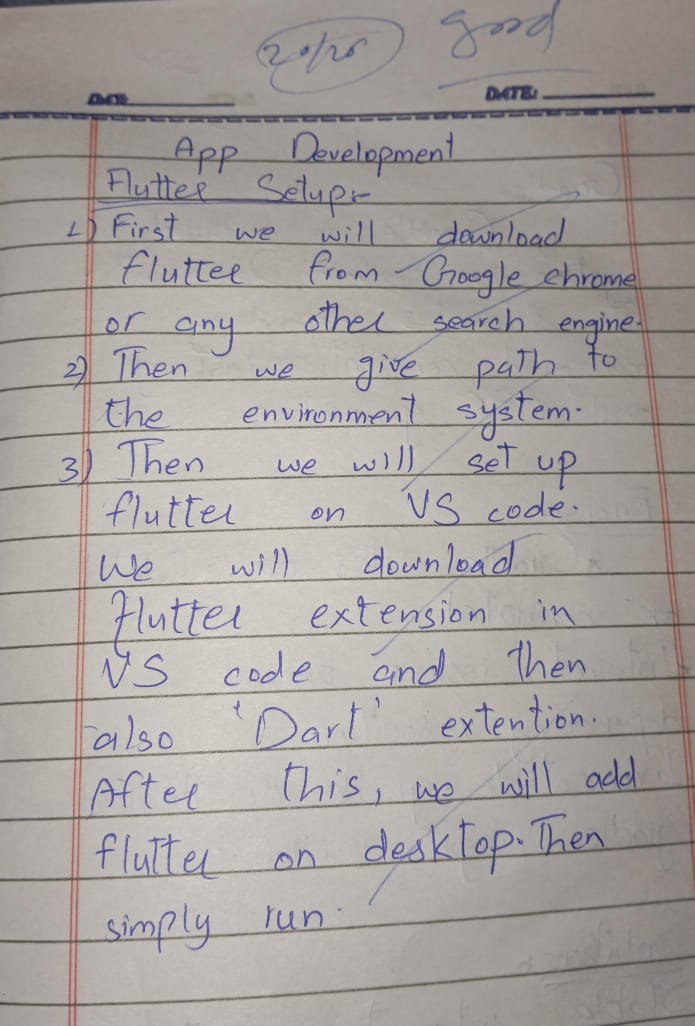 20/20 good
DATE: DATE:
App Development
Flutter Setup:-
1) First we will download
flutter from Google chrome
or any other search engine.
2) Then we give path to
the environment system.
3) Then we will set up
flutter on VS code.
We will download
Flutter extension in
VS code and then
also 'Dart' extention.
After this, we will add
flutter on desktop. Then
simply run.